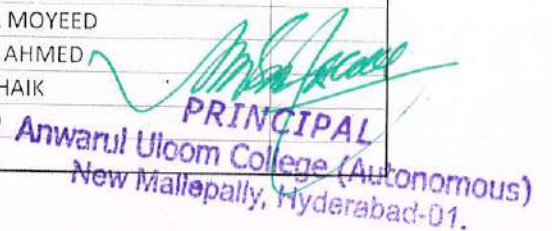 MOYEED
AHMED
HAIK
PRINCIPAL
Anwarul Uloom College (Autonomous)
New Mallepally, Hyderabad-01.